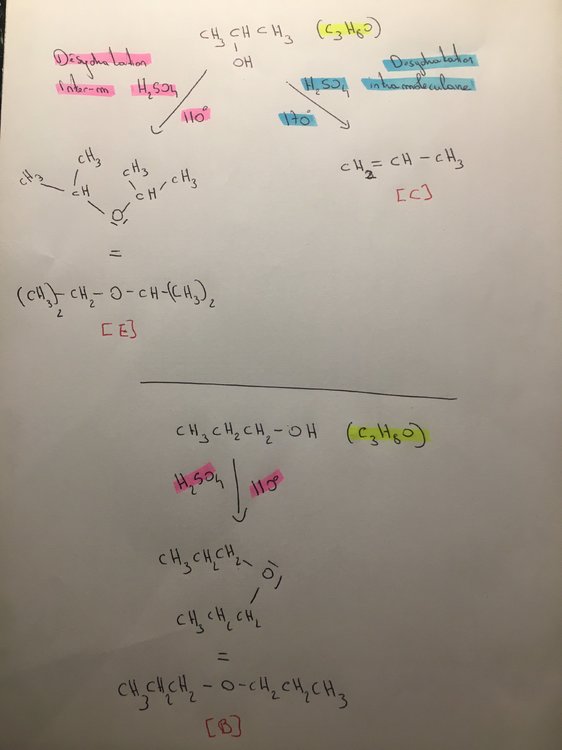 CH₃CHCH₃ (C₃H₈O)
OH
Désydratation
inter-m H₂SO₄
110°
Désydratation
H₂SO₄ intramoleculaire
170°
CH₂=CH-CH₃
[C]
CH₃ CH₃
CH₃ CH CH CH₃
O
=
(CH₃)₂-CH₂-O-CH-(CH₃)₂
[E]
CH₃CH₂CH₂-OH (C₃H₈O)
H₂SO₄ 110°
CH₃CH₂CH₂
O
CH₃CH₂CH₂
=
CH₃CH₂CH₂-O-CH₂CH₂CH₃
[B]